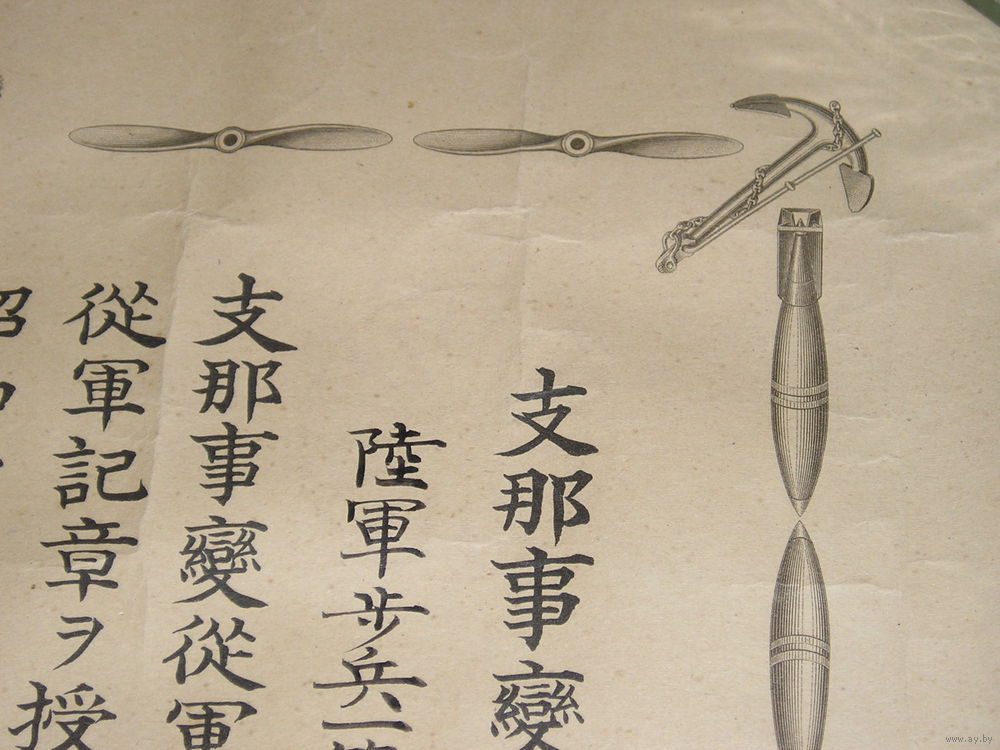 支那事變
陸軍步兵一
支那事變從軍
從軍記章ヲ授
昭和
www.ay.by